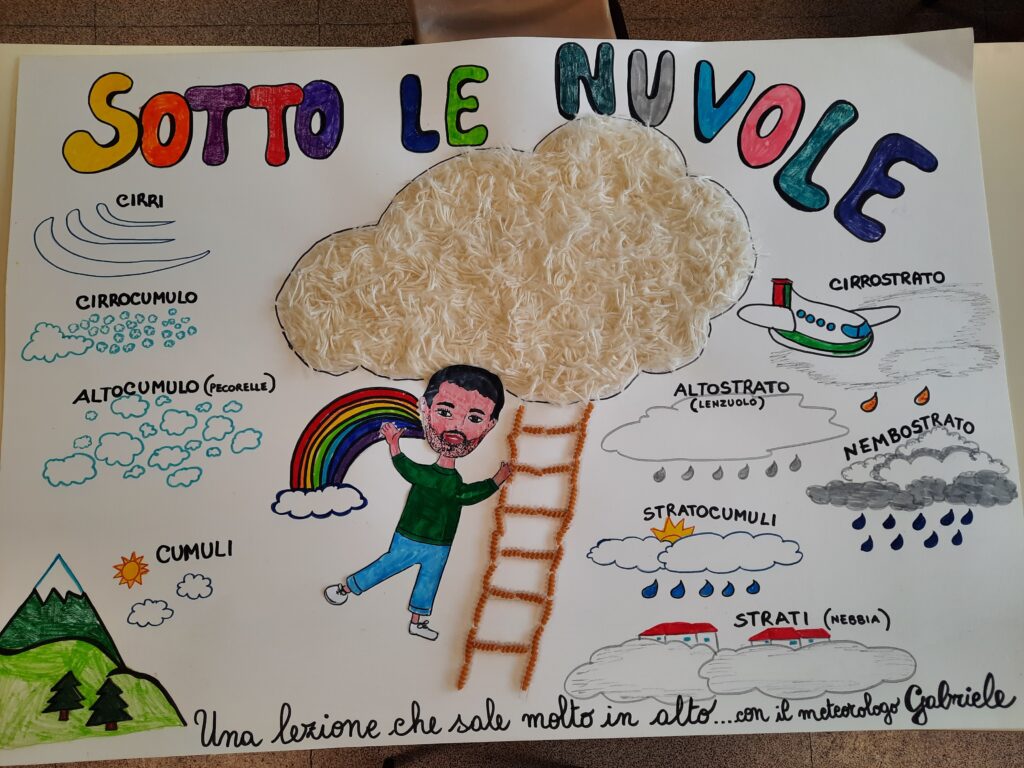 SOTTO LE NUVOLE
CIRRI
CIRROCUMULO
ALTOCUMULO (PECORELLE)
CUMULI
CIRROSTRATO
ALTOSTRATO
(LENZUOLO)
NEMBOSTRATO
STRATOCUMULI
STRATI (NEBBIA)
Una lezione che sale molto in alto...con il meteorologo Gabriele